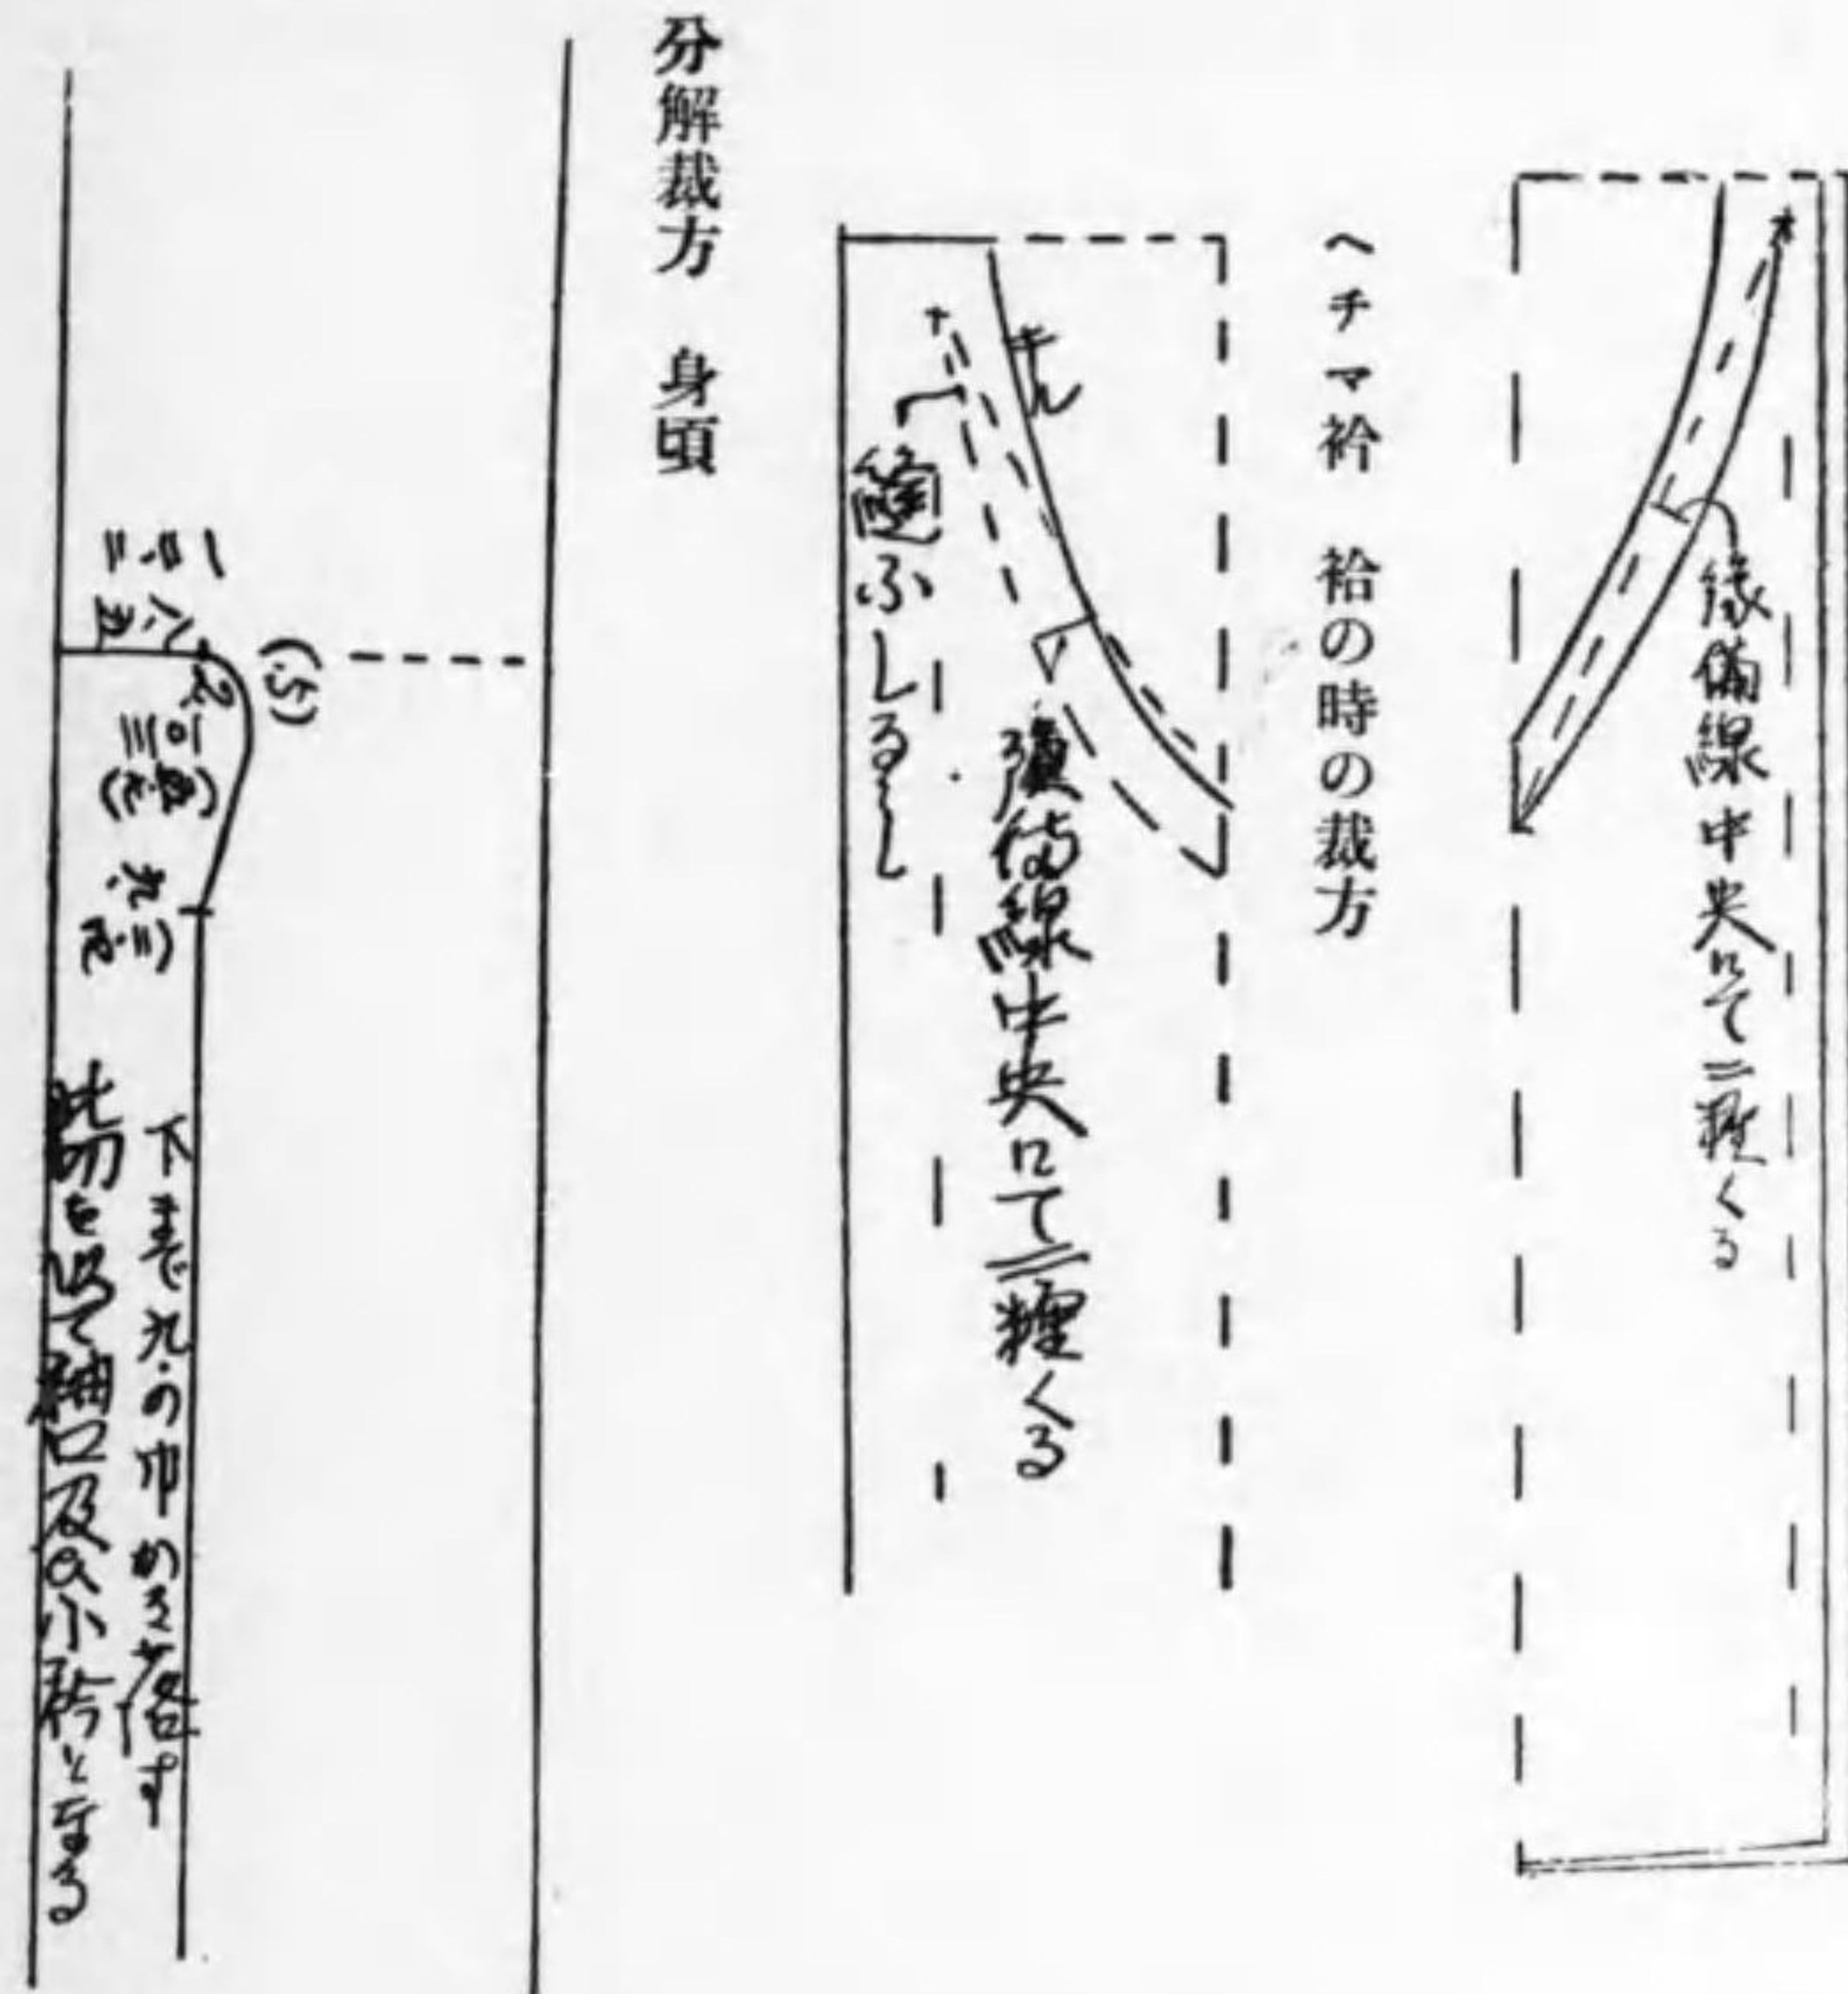 縁備線中央にて二糎くる
ヘチマ衿 袷の時の裁方
キル
縁備線中央にて二糎くる
縫ふしるし
分解裁方 身頃
(.5)
下まで九.の巾かき落す
此切を以て袖口及び小衿となる